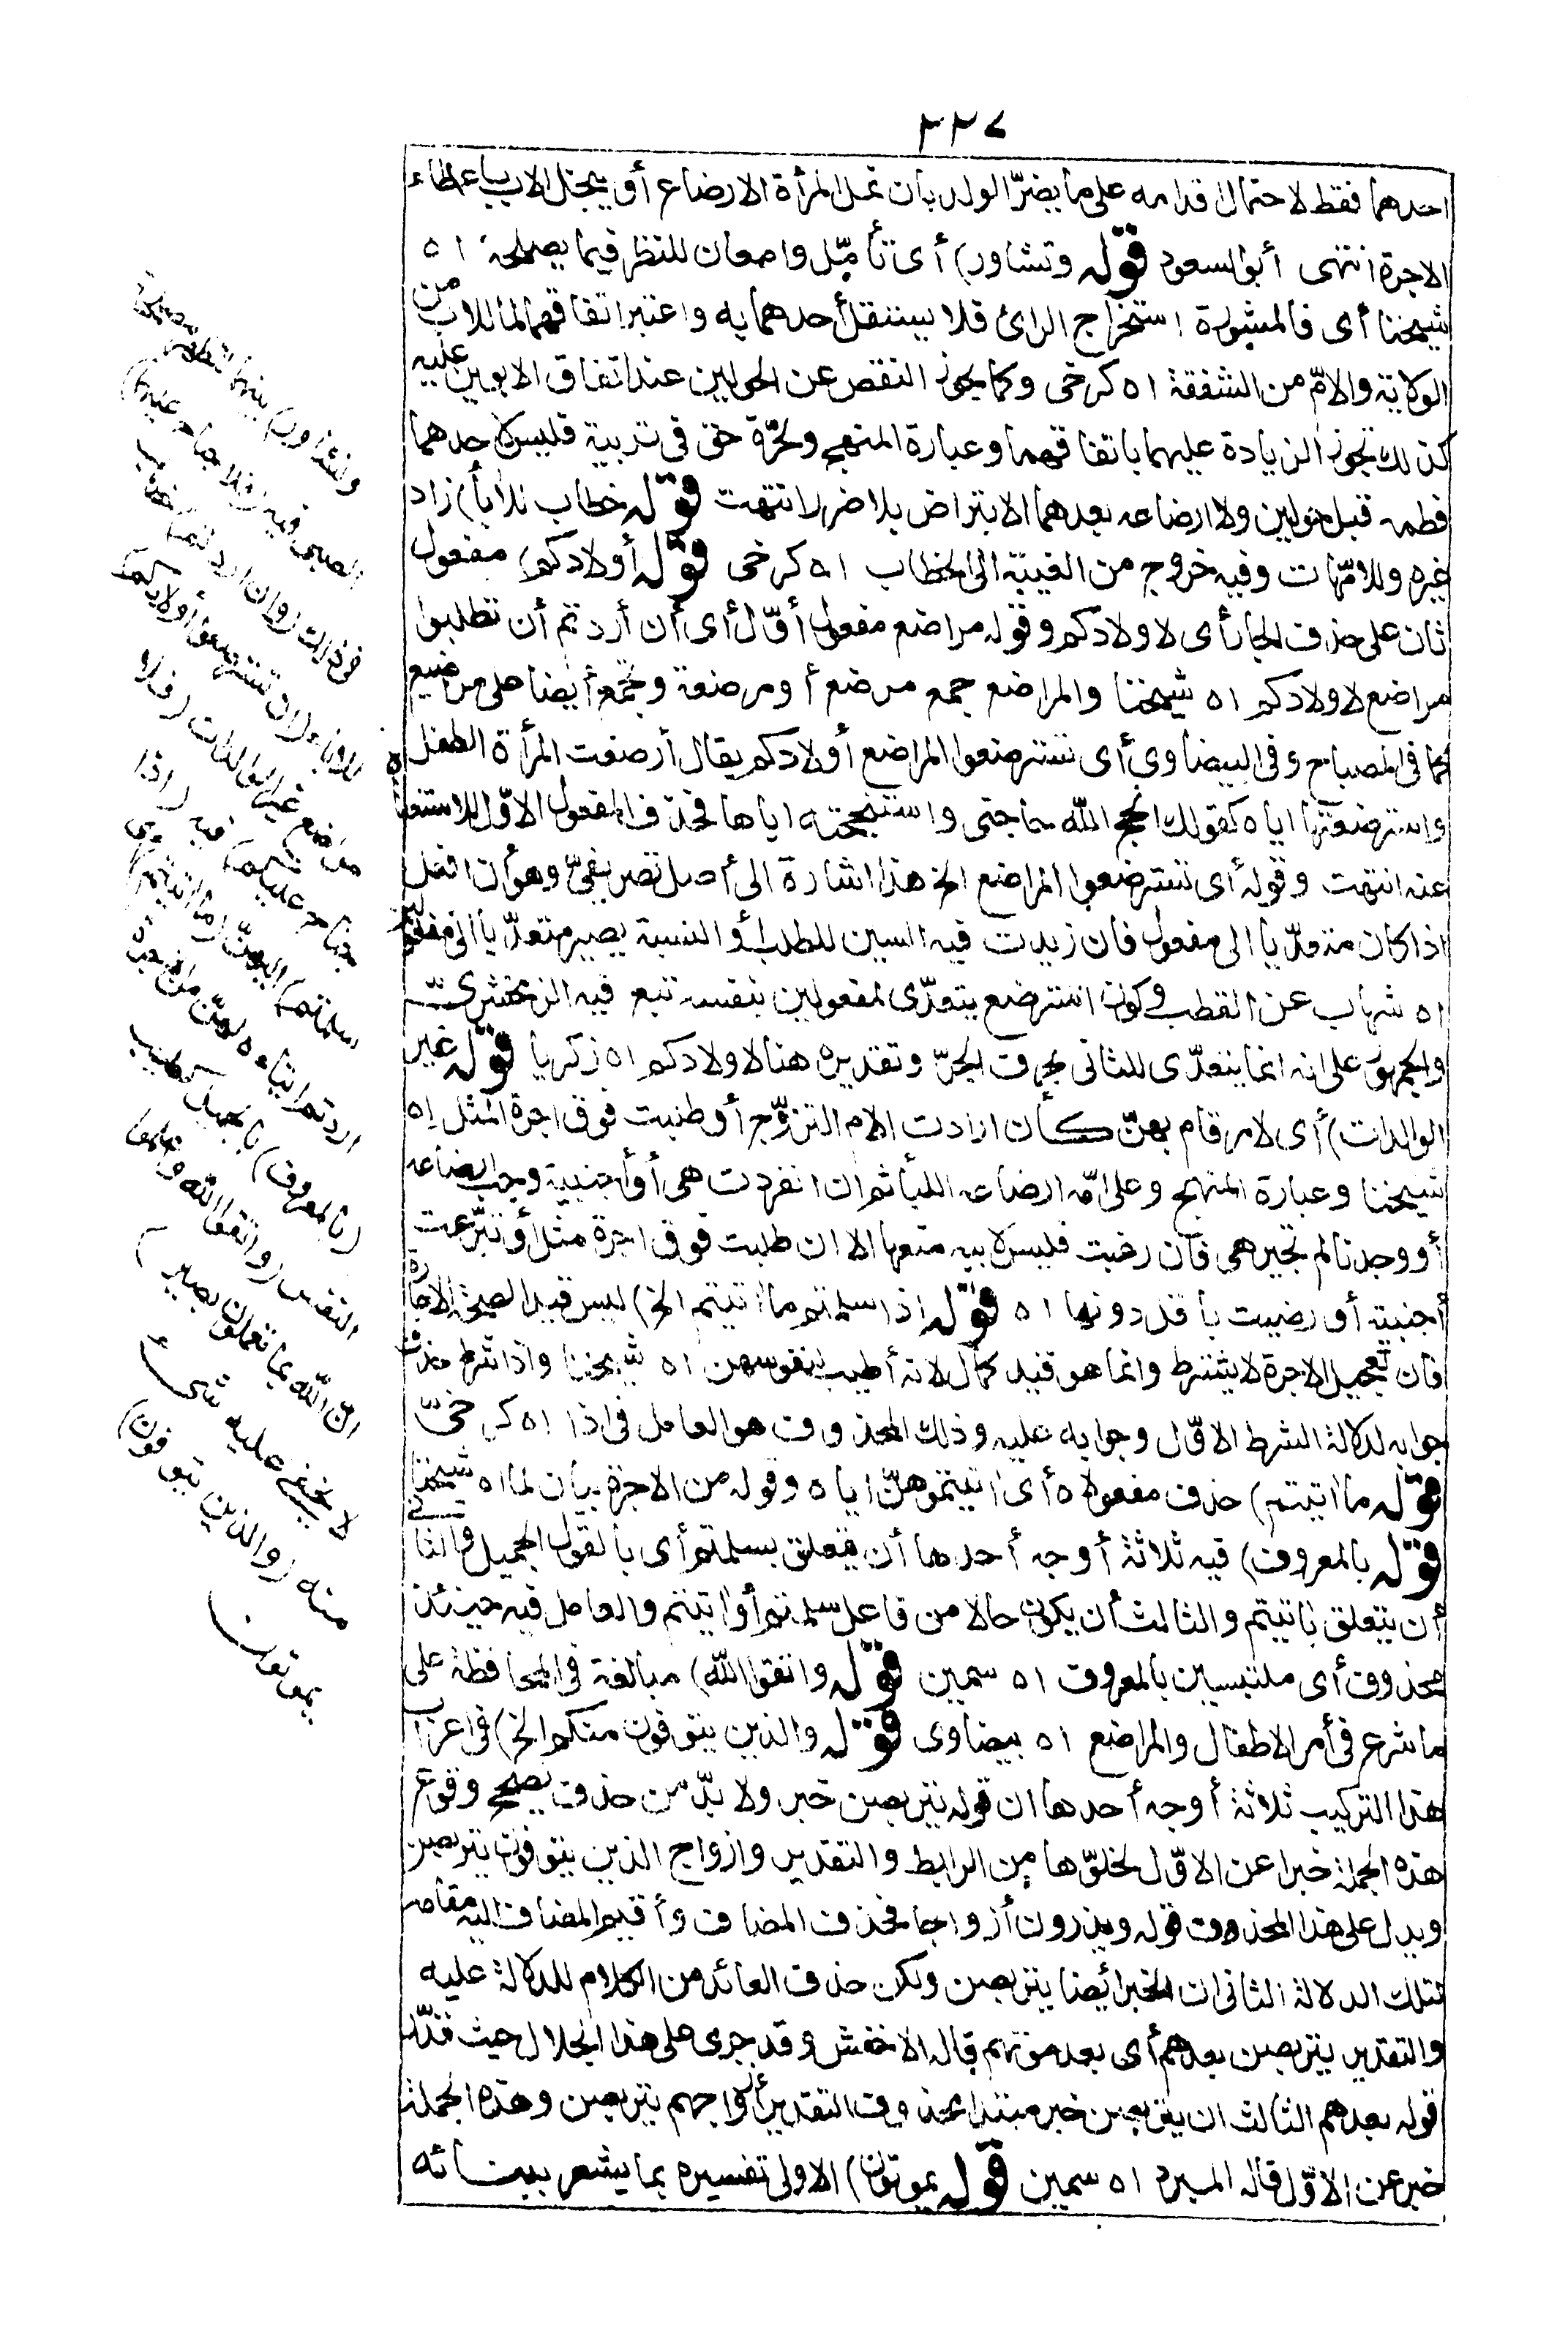 ٢٢٧
احدهما فقط لاحتمال اقدامه على ما يضرّ الولد بأن تمل المرأة الارضاع أو يبخل الاب باعطاء
الاجرة انتهى أبو السعود قوله وتشاور) أى تأمّل وامعان للنظر فيما يصلحه اه
شيخنا أى فالمشورة استخراج الرائ فلا يستقل أحدهما به واعتبر اتفاقهما لما للاب من
الولاية والامّ من الشفقة اه كرخى وكما يجوز النقص عن الحولين عند اتفاق الابوين عليه
كذلك تجوز الزيادة عليهما باتفاقهما وعبارة المنهج ولحرّة حق فى تربية فليس لاحدهما
فطمه قبل حولين ولا ارضاعه بعدهما الا بتراض بلا ضرر انتهت قوله خطاب للآباء) زاد
غيره وللامّهات وفيه خروج من الغيبة الى الخطاب اه كرخى قوله أولادكم) مفعول
ثان على حذف الجار أى لاولادكم وقوله مراضع مفعول أوّل أى أن أردتم أن تطلبوا
مراضع لاولادكم اه شيخنا والمراضع جمع مرضع أو مرضعة وتجمع أيضا على مراضيع
كما فى المصباح وفى البيضاوى أى تسترضعوا المراضع أولادكم يقال أرضعت المرأة الطفل
واسترضعتها اياه كقولك انجح الله حاجتى واستنجحته اياها فحذف المفعول الاوّل للاستغناء
عنه انتهت وقوله أى تسترضعوا المراضع الخ هذا اشارة الى أصل تصريفىّ وهو أن افعل
اذا كان متعدّيا الى مفعول فان زيدت فيه السين للطلب أو النسبة يصير متعدّيا الى مفعولين
اه شهاب عن القطب وكون استرضع يتعدّى لمفعولين بنفسه تبع فيه الزمخشرىّ
والجمهور على انه انما يتعدّى للثانى بحرف الجرّ وتقديره هنا لاولادكم اه زكريا قوله غير
الوالدات) أى لامر قام بهنّ كأن ارادت الام التزوّج أو طلبت فوق اجرة المثل اه
شيخنا وعبارة المنهج وعلى امّه ارضاعه اللبأ ثم ان انفردت هى أو أجنبية وجب ارضاعه
أو وجدتا لم تجبر هى فان رغبت فليس لابيه منعها الا ان طلبت فوق اجرة مثل أو تبرّعت
أجنبية أو رضيت بأقل دونها اه قوله اذا سلمتم ما اتيتم الخ) ليس قيد الصحة الاجارة
فان تعجيل الاجرة لا يشترط وانما هو قيد كمال لانه أطيب لنفوسهن اه شيخنا واذا شرط حذف
جوابه لدلالة الشرط الاوّل وجوابه عليه وذلك المحذوف هو العامل فى اذا اه كرخىّ
قوله ما اتيتم) حذف مفعولاه أى اتيتموهنّ اياه وقوله من الاجرة بيان لما اه شيخنا
قوله بالمعروف) فيه ثلاثة أوجه أحدها أن يتعلق بسلمتم أى بالقول الجميل والثانى
أن يتعلق باتيتم والثالث أن يكون حالا من فاعل سلمتم أو اتيتم والعامل فيه حينئذ
محذوف أى ملتبسين بالمعروف اه سمين قوله واتقوا الله) مبالغة فى المحافظة على
ما شرع فى أمر الاطفال والمراضع اه بيضاوى قوله والذين يتوفون منكم الخ) فى اعراب
هذا التركيب ثلاثة أوجه أحدها ان قوله يتربصن خبر ولا بدّ من حذف يصحح وقوع
هذه الجملة خبرا عن الاوّل لخلوّها من الرابط والتقدير وازواج الذين يتوفون يتربصن
ويدل على هذا المحذوف قوله ويذرون أزواجا فحذف المضاف وأقيم المضاف اليه مقامه
لتلك الدلالة الثانى ان الخبر أيضا يتربصن ولكن حذف العائد من الكلام للدلالة عليه
والتقدير يتربصن بعدهم أى بعد موتهم قاله الاخفش وقد جرى على هذا الجلال حيث قدّر
قوله بعدهم الثالث ان يتربصن خبر مبتدا محذوف التقدير أزواجهم يتربصن وهذه الجملة
خبر عن الاوّل قاله المبرد اه سمين قوله يموتون) الاولى تفسيره بما يشعر ببنائه
وتشاور) بينهما
الصبى فيه (فلا جناح عليهما)
فى ذلك (وان اردتم) خطاب
للآباء (ان تسترضعوا أولادكم)
مراضع غير الوالدات (فلا
جناح عليكم) فيه (اذا
سلمتم) اليهنّ (ما اتيتم) أى
اردتم ايتاءه لهنّ من الاجرة
(بالمعروف) بالجميل كطيب
النفس (واتقوا الله واعلموا
ان الله بما تعملون بصير)
لا يخفى عليه شىء
منه (والذين يتوفون)
يموتون